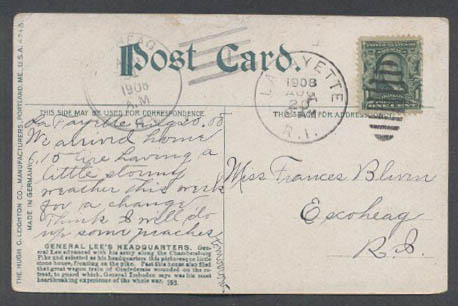 Post Card.
THE HUGH C. LEIGHTON CO., MANUFACTURERS, PORTLAND, ME. U.S.A.
MADE IN GERMANY
1908
A.M
R.I.
LAFAYETTE
1908
AUG
20
R.I.
THIS SIDE MAY BE USED FOR CORRESPONDENCE.
THIS IS FOR ADDRESS
La Fayette Aug 20, 08
We arrived home
6,15 are having a
little stormy
weather this week
for a change
Think I will do
up some peaches
Miss Frances Blevin
Escoheag
R.I.
GENERAL LEE'S HEADQUARTERS. Gen-
eral Lee advanced with his army along the Chambersburg
Pike and selected as his headquarters this picturesque little
stone house, fronting on the pike. Past this house also filed
that great wagon train of Confederate wounded on the re-
treat, to guard which, General Imboden says was his most
heartbreaking experience of the whole war.